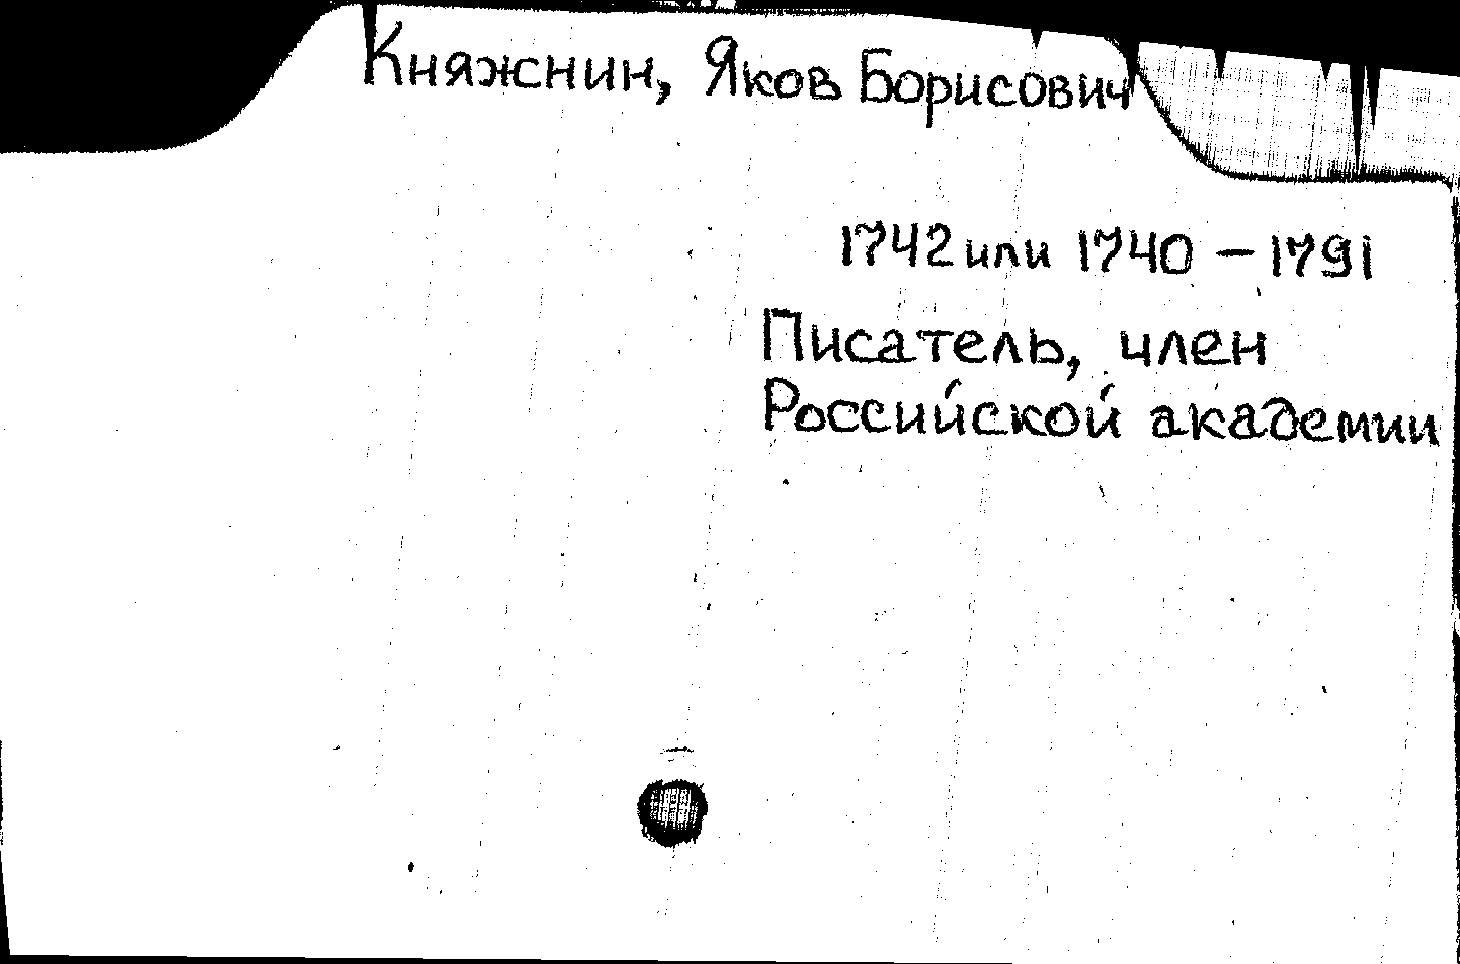 Княжнин, Яков Борисович
1742 или 1740 – 1791
Писатель, член
Российской академии